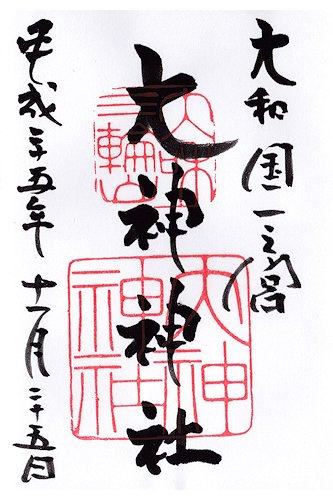 大和国一之宮
大神神社
平成二十五年 十一月二十五日
大和
三輪山
大神
神社